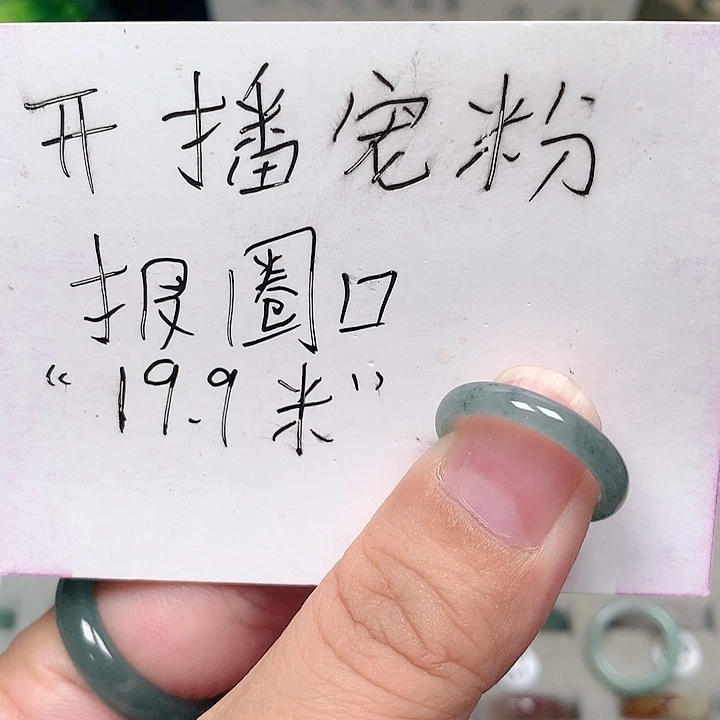 开播宠粉
报圈口
“19.9米”